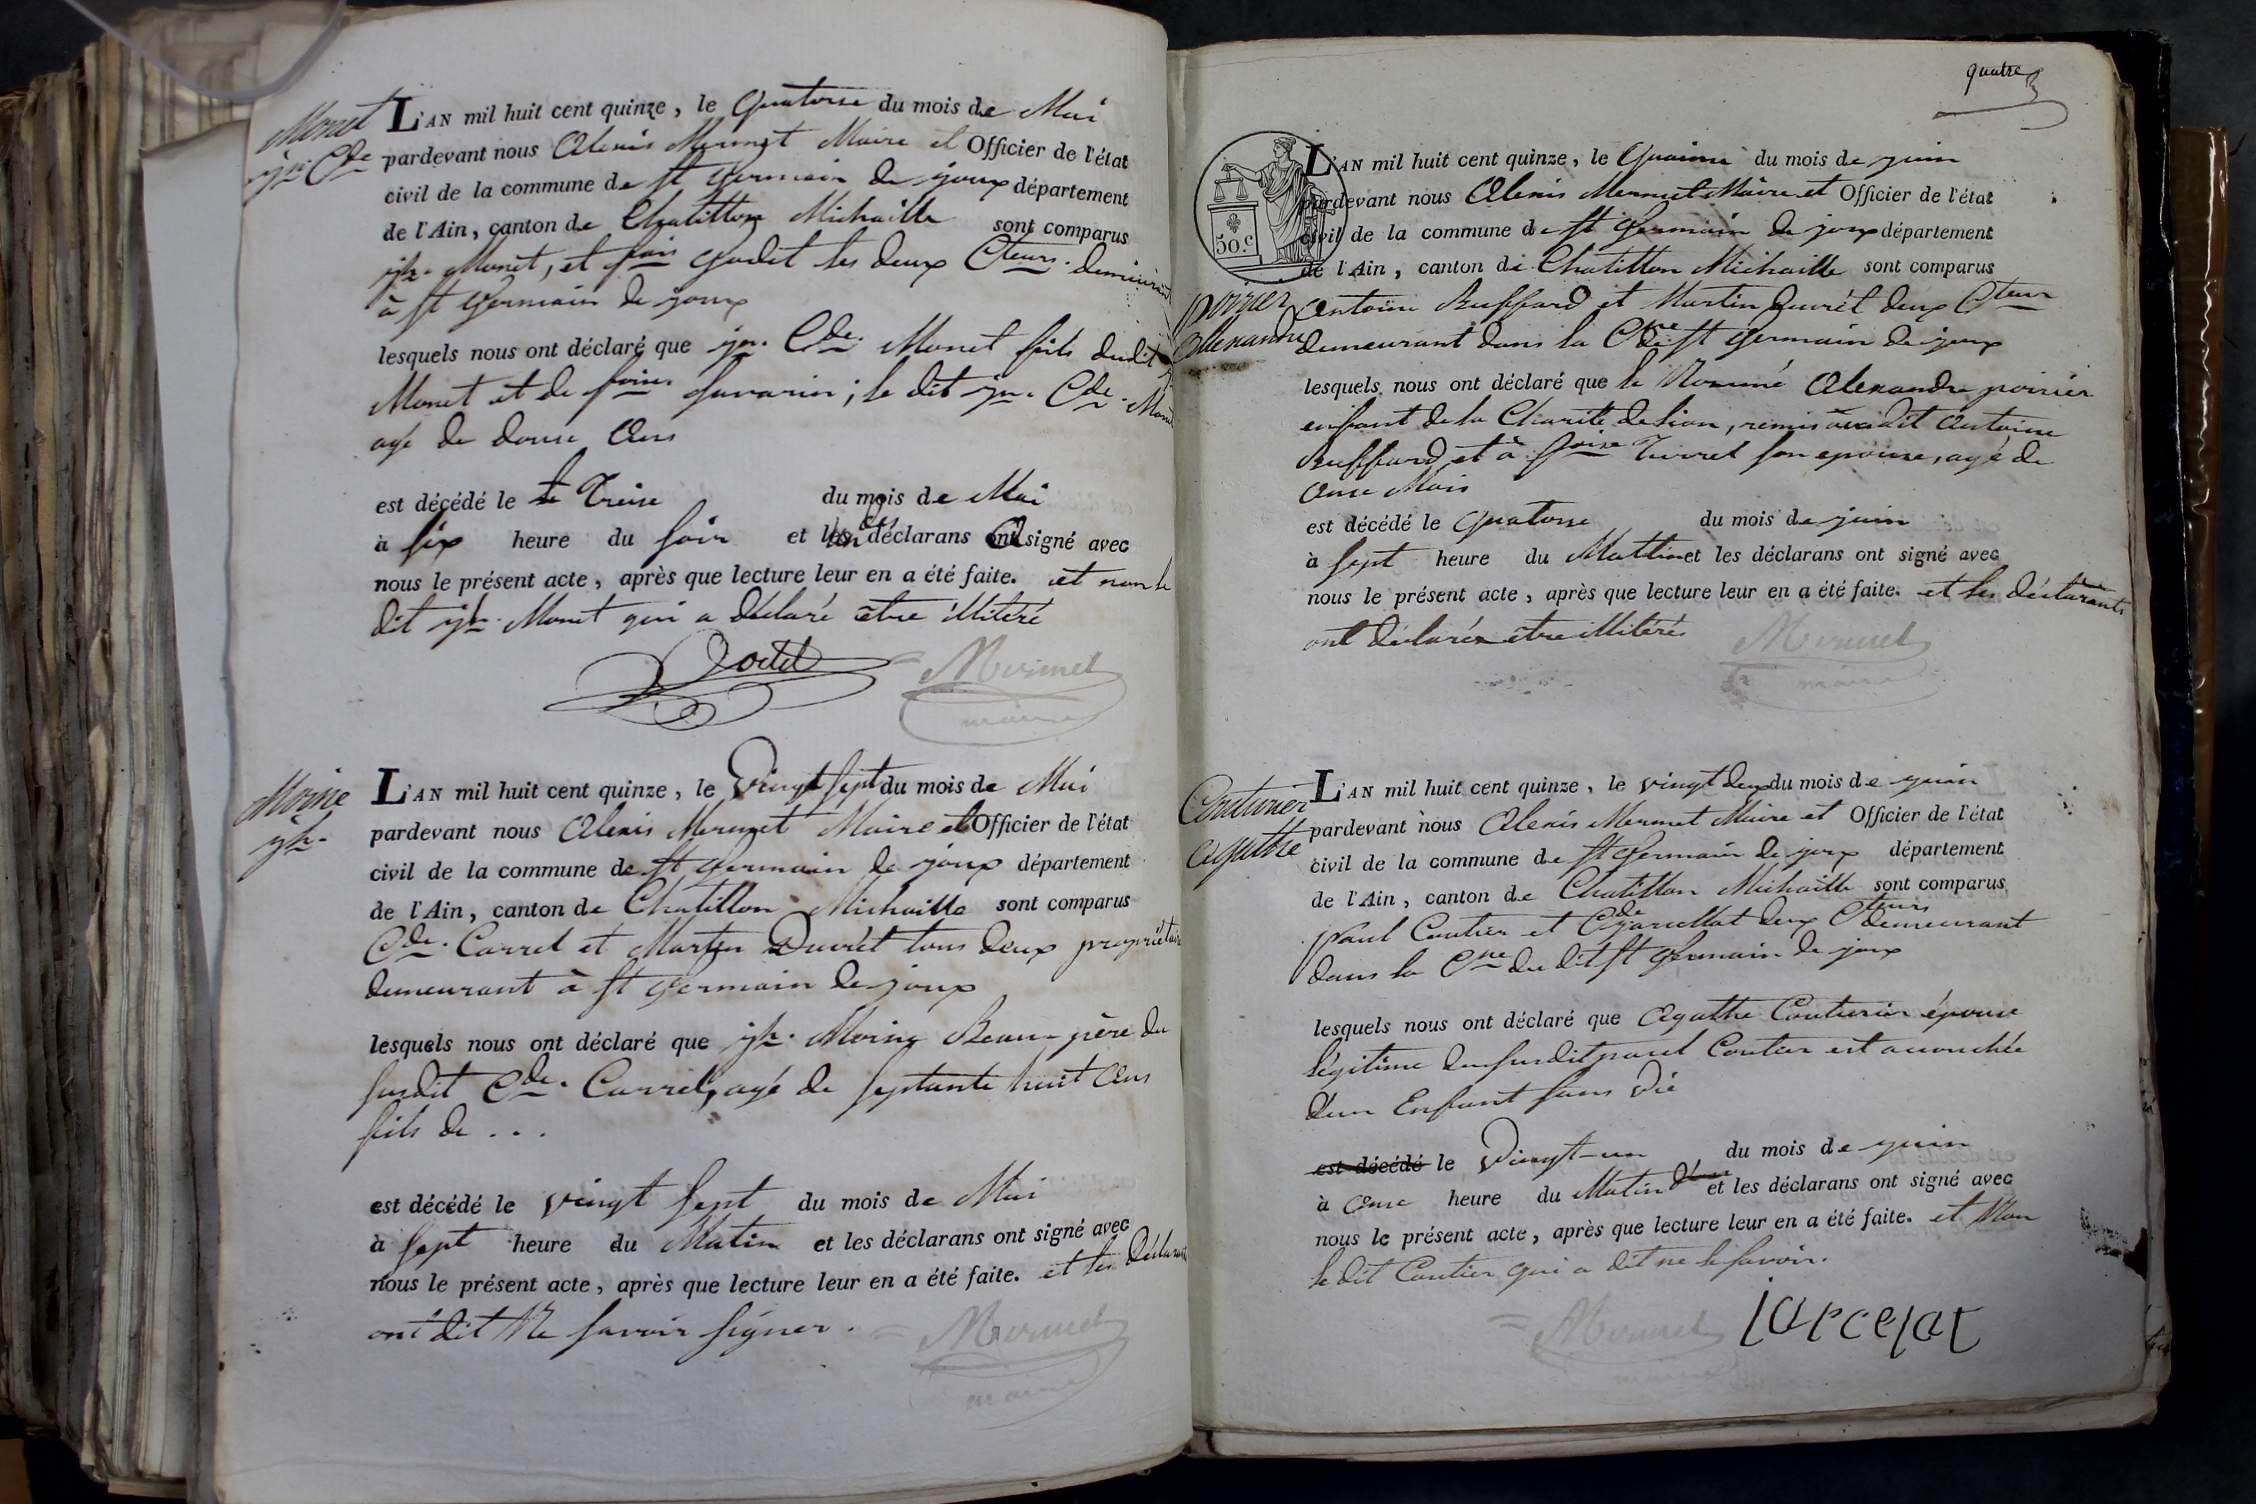 Monet
jn. Cde
L'AN mil huit cent quinze, le Quatorse du mois de Mai
pardevant nous Alexis Mermet Maire et Officier de l'état
civil de la commune de St Germain de joux département
de l'Ain, canton de Chatillon Michaille sont comparus
jh. Monet, et fois Godet les deux Cteurs. demeurant
à St Germain de joux
lesquels nous ont déclaré que jn. Cde. Monet fils dudit
Monet et de foise. Savarin; le dit jn. Cde. Monet
agé de douse Ans
est décédé le le Treise du mois de Mai
à six heure du soir et déclarans signé avec
nous le présent acte, après que lecture leur en a été faite. et non le
dit jh. Monet qui a déclaré être illitéré
Mermet
maire
Moine
jh.
L'AN mil huit cent quinze, le Vingt sept du mois de Mai
pardevant nous Alexis Mermet Maire et Officier de l'état
civil de la commune de St Germain de joux département
de l'Ain, canton de Chatillon Michaille sont comparus
Cde. Carrel et Martin Duvrét tous deux propriétaires
demeurant à St Germain de joux
lesquels nous ont déclaré que jh. Moine Beau-père du
susdit Cde. Carrel, agé de septante huit Ans
fils de ...
est décédé le vingt sept du mois de Mai
à sept heure du Matin et les déclarans ont signé avec
nous le présent acte, après que lecture leur en a été faite. et les Déclarants
ont dit Ne savoir signer.
Mermet
maire
quatre
30 c
L'AN mil huit cent quinze, le Quainse du mois de juin
pardevant nous Alexis Mermet Maire et Officier de l'état
civil de la commune de St Germain de joux département
de l'Ain, canton de Chatillon Michaille sont comparus
poirier
Allexandre
Antoine Buffard et Martin Duvrét deux Cteur
demeurant dans la Cne de St Germain de joux
lesquels nous ont déclaré que le Nommé Alexandre poirier
enfant de la Charité de Lion, remis audit Antoine
Buffard et à foise Turrel son epouse, agé de
onse Mois
est décédé le Quatorse du mois de juin
à sept heure du Mattin et les déclarans ont signé avec
nous le présent acte, après que lecture leur en a été faite. et les déclarants
ont déclarés être illitérés
Mermet
maire
Couturier
Agathe
L'AN mil huit cent quinze, le vingt deux du mois de juin
pardevant nous Alexis Mermet Maire et Officier de l'état
civil de la commune de St Germain de joux département
de l'Ain, canton de Chatillon Michaille sont comparus
paul Coutier et Cde jarcellat deux Cteurs demeurant
dans la Cne du dit St Germain de joux
lesquels nous ont déclaré que Agathe Couturier épouse
légitime du susdit paul Coutier est accouchée
d'un Enfant sans vie
est décédé le Vingt-un du mois de juin
à onse heure du Matin et les déclarans ont signé avec
nous le présent acte, après que lecture leur en a été faite. et Non
le dit Coutier qui a dit ne le savoir.
Mermet
jarcelat